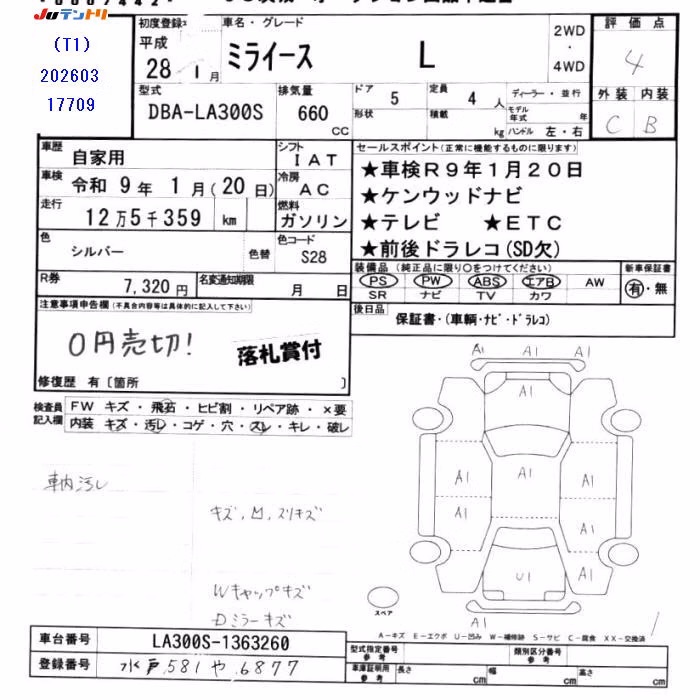 JUテントリ
(T1)
202603
17709
初度登録
平成
28 1月
車名・グレード
ミライース L
2WD
・
4WD
評価点
4
型式
DBA-LA300S
排気量
660
CC
ドア
5
形状
定員
4人
積載
kg
ディーラー・並行
モデル年式 年
ハンドル 左・右
外装 内装
C B
車歴
自家用
シフト
IAT
車検
令和 9年 1月(20日)
冷房
AC
走行
12万5千359 km
燃料
ガソリン
色
シルバー
色替
色コード
S28
R券
7,320円
名変通知期限
月 日
セールスポイント(正常に機能するものに限ります)
★車検R9年1月20日
★ケンウッドナビ
★テレビ ★ETC
★前後ドラレコ(SD欠)
装備品(純正品に限り○をつけてください)
PS PW ABS エアB AW
SR ナビ TV カワ
新車保証書
有・無
後日品
保証書・(車輌・ナビ・ドラレコ)
注意事項申告欄(不具合内容等は具体的に記入して下さい)
0円売切!
落札賞付
修復歴 有〔箇所 〕
検査員記入欄
FW キズ・飛石・ヒビ割・リペア跡・×要
内装 キズ・汚レ・コゲ・穴・スレ・キレ・破レ
車内汚レ
キズ,凹,スリキズ
Wキャップキズ
Dミラーキズ
A1 A1 A1
A1
A1
A1 A1
A1 A1
U1 A1
A1
スペア
A-キズ E-エクボ U-凹み W-補修跡 S-サビ C-腐食 XX-交換済
車台番号
LA300S-1363260
登録番号
水戸 581 や 6877
型式指定番号
参考
類別区分番号
参考
車庫証明用
参考
長さ cm
幅 cm
高さ cm